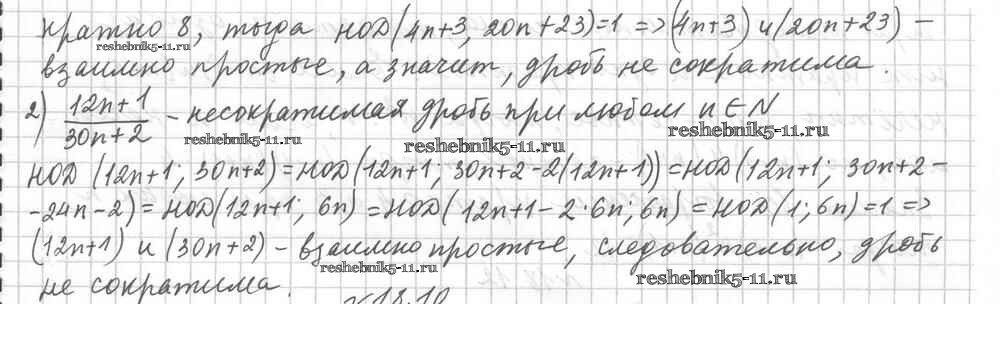 кратно 8, тогда НОД(4n+3, 20n+23)=1 => (4n+3) и (20n+23) –
reshebnik5-11.ru
взаимно простые, а значит, дробь не сократима.
2) 12n+1/30n+2 – несократимая дробь при любом n∈N
reshebnik5-11.ru reshebnik5-11.ru
НОД (12n+1; 30n+2) = НОД(12n+1; 30n+2-2(12n+1)) = НОД(12n+1; 30n+2-
-24n-2) = НОД(12n+1; 6n) = НОД(12n+1-2·6n; 6n) = НОД(1; 6n)=1 =>
(12n+1) и (30n+2) – взаимно простые, следовательно, дробь
reshebnik5-11.ru reshebnik5-11.ru
не сократима.